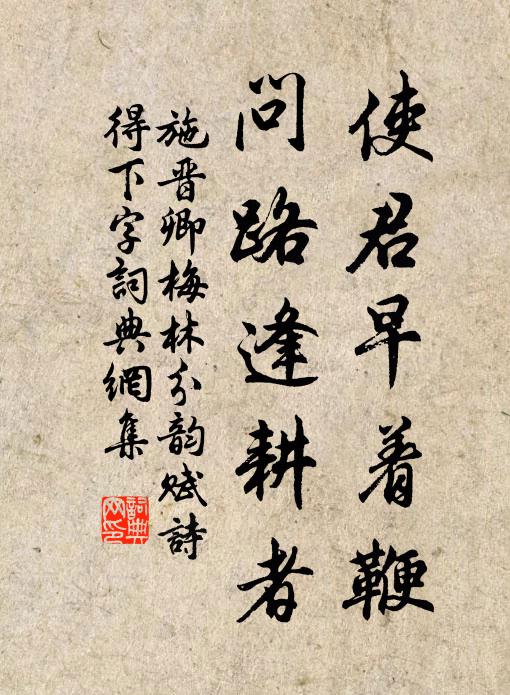 使君早着鞭
問路逢耕者
施晋卿梅林分韵赋詩
得下字詞典網集
詞典
网印